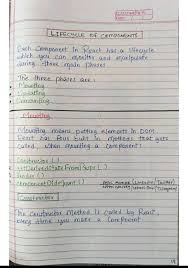 LIFECYCLE OF COMPONENTS
Each Component in React has a lifecycle
which you can monitor and manipulate
during three main phases.
The three phases are:
Mounting
Updating
Unmounting
Mounting
Mounting means putting elements in DOM.
React has four built in methods that gets
called, when mounting a component:
Constructor ( )
getDerivedStateFromProps ( )
render ( )
componentDidMount ( )
Constructor
The constructor Method is called by React,
every time you make a component.